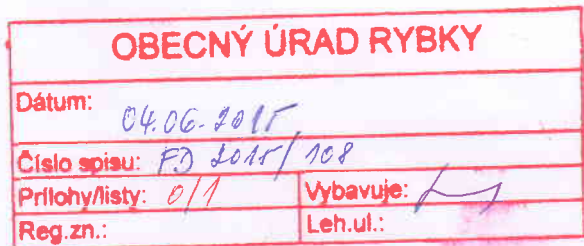 OBECNÝ ÚRAD RYBKY
Dátum: 04.06.2015
Číslo spisu: FD 2015/108
Prílohy/listy: 0/1 Vybavuje:
Reg.zn.: Leh.ul.: